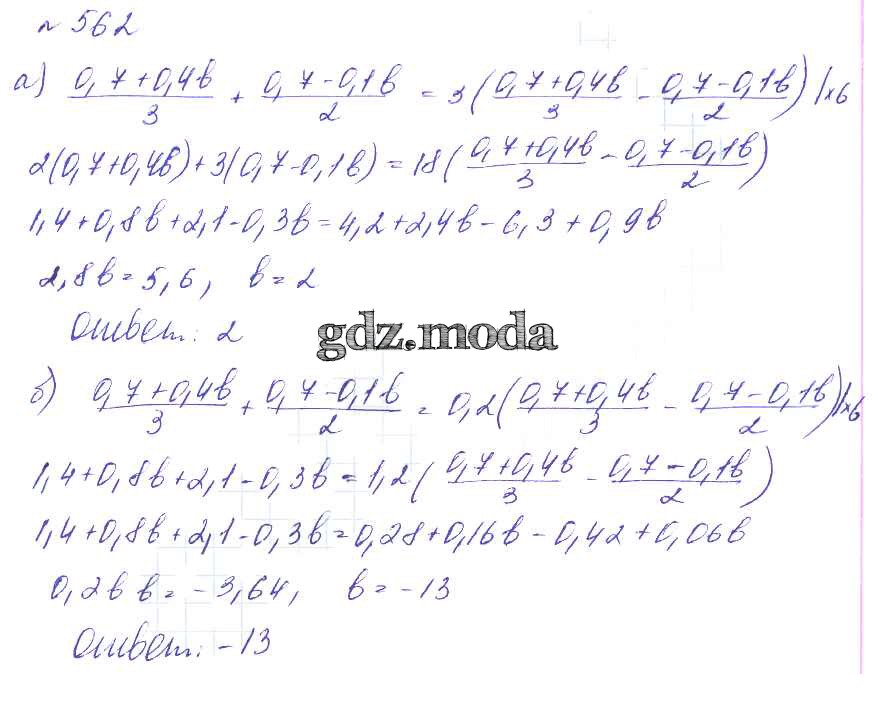 № 562
а) (0,7+0,4b)/3 + (0,7-0,1b)/2 = 3((0,7+0,4b)/3 - (0,7-0,1b)/2) |×6
2(0,7+0,4b)+3(0,7-0,1b)=18((0,7+0,4b)/3 - (0,7-0,1b)/2)
1,4+0,8b+2,1-0,3b=4,2+2,4b-6,3+0,9b
2,8b=5,6, b=2
Ответ: 2
gdz.moda
б) (0,7+0,4b)/3 + (0,7-0,1b)/2 = 0,2((0,7+0,4b)/3 - (0,7-0,1b)/2) |×6
1,4+0,8b+2,1-0,3b=1,2((0,7+0,4b)/3 - (0,7-0,1b)/2)
1,4+0,8b+2,1-0,3b=0,28+0,16b-0,42+0,06b
0,2b b=-3,64, b=-13
Ответ: -13